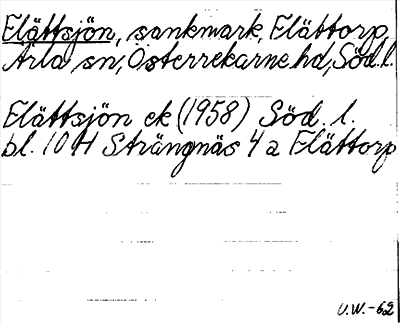 Flättsjön, sankmark, Flättorp,
Ärla sn, Österrekarne hd, Söd. l.
Flättsjön ek (1958) Söd. l.
bl. 10 H Strängnäs 4 a Flättorp
U.W.-62